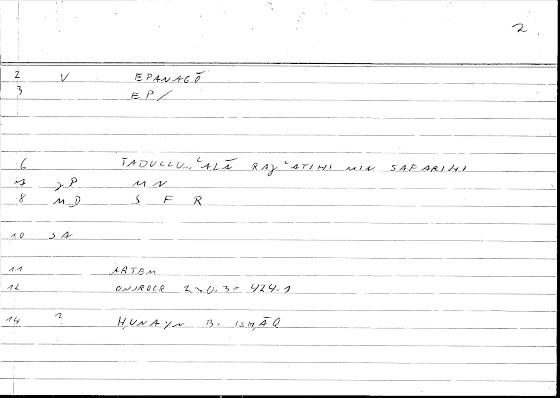 2
2 V EPANAGŌ
3 EP/
6 TADULLU... ʿALĀ RAǦʿATIHI MIN SAFARIHI
7 ȝP MN
8 MD S F R
10 SA
11 ARTEM
12 ONIROCR 424.1
14 ? ḤUNAYN B. ISḤĀQ